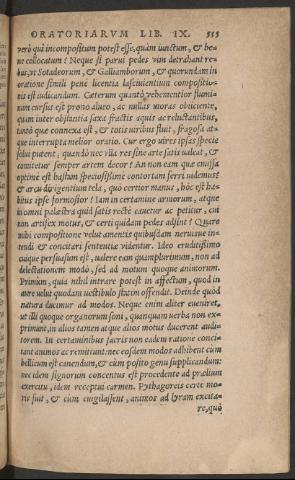 ORATORIARVM LIB. IX. 515
verò quì incompositum potest esse, quàm iunctum, & be-
ne collocatum? Neque si parui pedes vim detrahant re-
bus, vt Sotadeorum, & Galliamborum, & quorundam in
oratione simili penè licentia lasciuientium compositio-
nis est iudicandum. Caeterum quantò vehementior flumi-
num cursus est prono alueo, ac nullas moras obiiciente,
quàm inter obstantia saxa fractis aquis ac reluctantibus,
tantò quae connexa est, & totis viribus fluit, fragosa at-
que interrupta melior oratio. Cur ergo vires ipsas specie
solui putent, quando nec vlla res sine arte satis valeat, &
comitetur semper artem decor? An non eam quae emissa
optimè est hastam speciosissimè contortam ferri videmus?
& arcu dirigentium tela, quò certior manus, hòc est ha-
bitus ipse formosior? Iam in certamine armorum, atque
in omni palaestra quid satis rectè cauetur ac petitur, cui
non artifex motus, & certi quidam pedes adsint? Quare
mihi compositione velut amentis quibusdam neruisue in-
tendi & concitari sententiae videntur. Ideo eruditissimo
cuique persuasum est, valere eam quamplurimum, non ad
delectationem modò, sed ad motum quoque animorum.
Primùm, quia nihil intrare potest in affectum, quod in
aure velut quodam vestibulo statim offendit. Deinde quòd
natura ducimur ad modos. Neque enim aliter eueniret,
vt illi quoque organorum soni, quanquam verba non ex-
primunt, in alios tamen atque alios motus ducerent audi-
torem. In certaminibus sacris non eadem ratione conci-
tant animos ac remittunt: nec eosdem modos adhibent cùm
bellicum est canendum, & cùm posito genu supplicandum:
nec idem signorum concentus est procedente ad praelium
exercitu, idem receptui carmen. Pythagoreis certè mo-
ris fuit, & cùm euigilassent, animos ad lyram excita-
re, quò